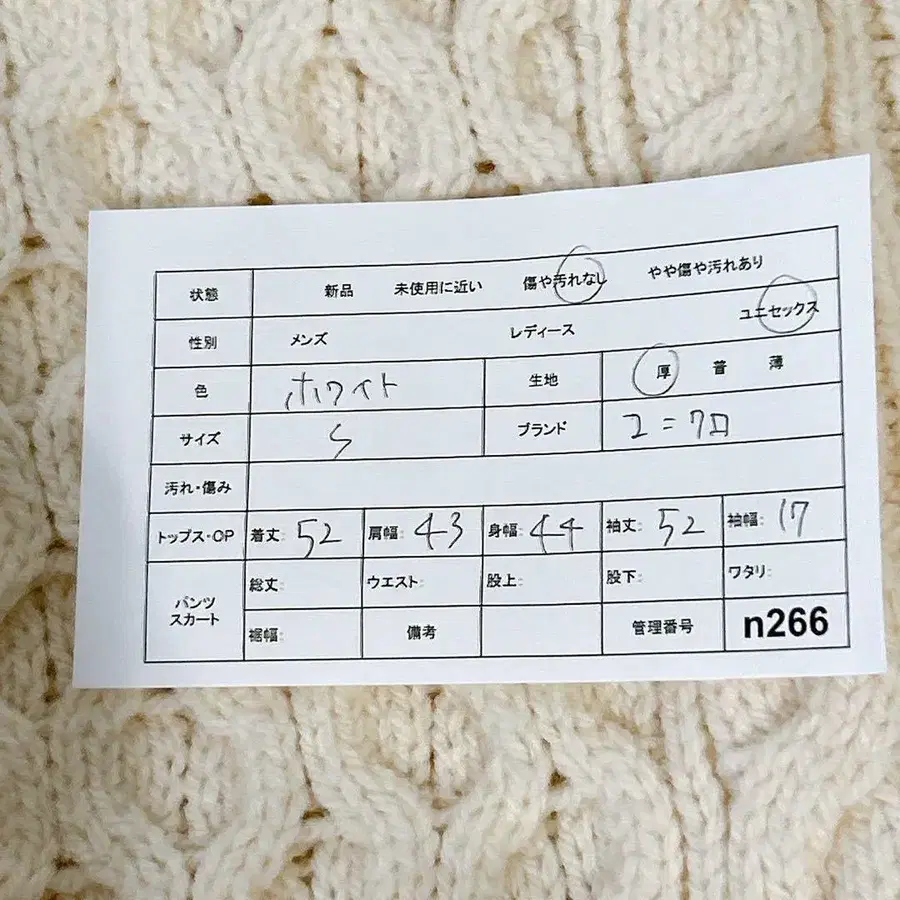 状態 新品 未使用に近い 傷や汚れなし やや傷や汚れあり
性別 メンズ レディース ユニセックス
色 ホワイト 生地 厚 普 薄
サイズ S ブランド ユニクロ
汚れ・傷み
トップス・OP 着丈: 52 肩幅: 43 身幅: 44 袖丈: 52 袖幅: 17
パンツ
スカート
総丈: ウエスト: 股上: 股下: ワタリ:
裾幅: 備考 管理番号 n266